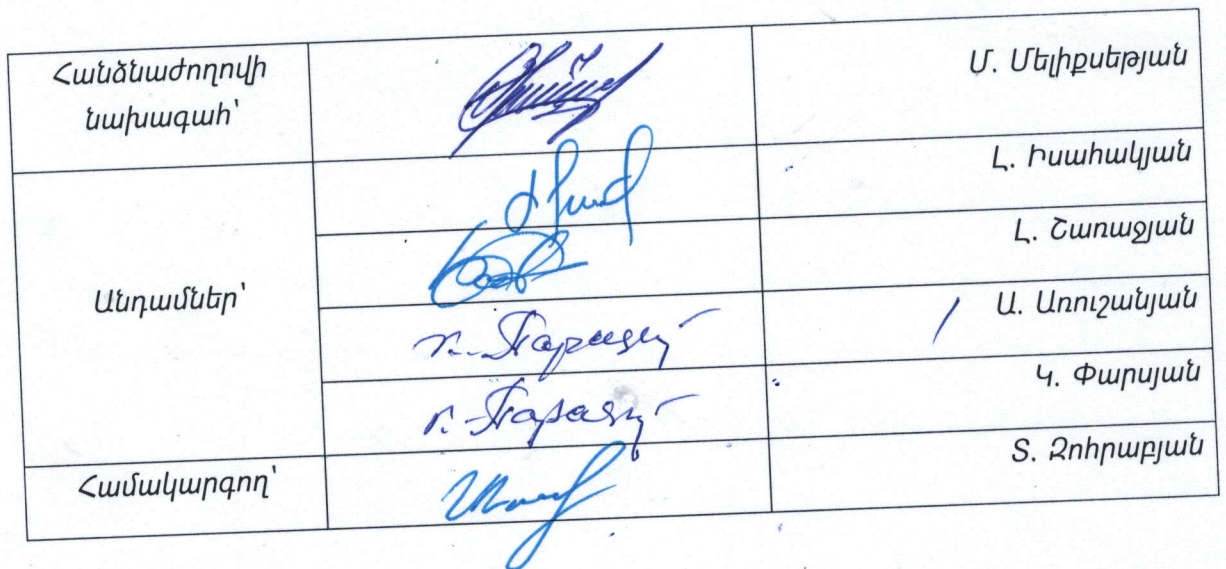 Հանձնաժողովի
նախագահ՝
Մ. Մելիքսեթյան
Լ. Իսահակյան
Լ. Շառաջյան
Անդամներ՝
Ա. Առուշանյան
Կ. Փարսյան
Համակարգող՝
Տ. Զոհրաբյան